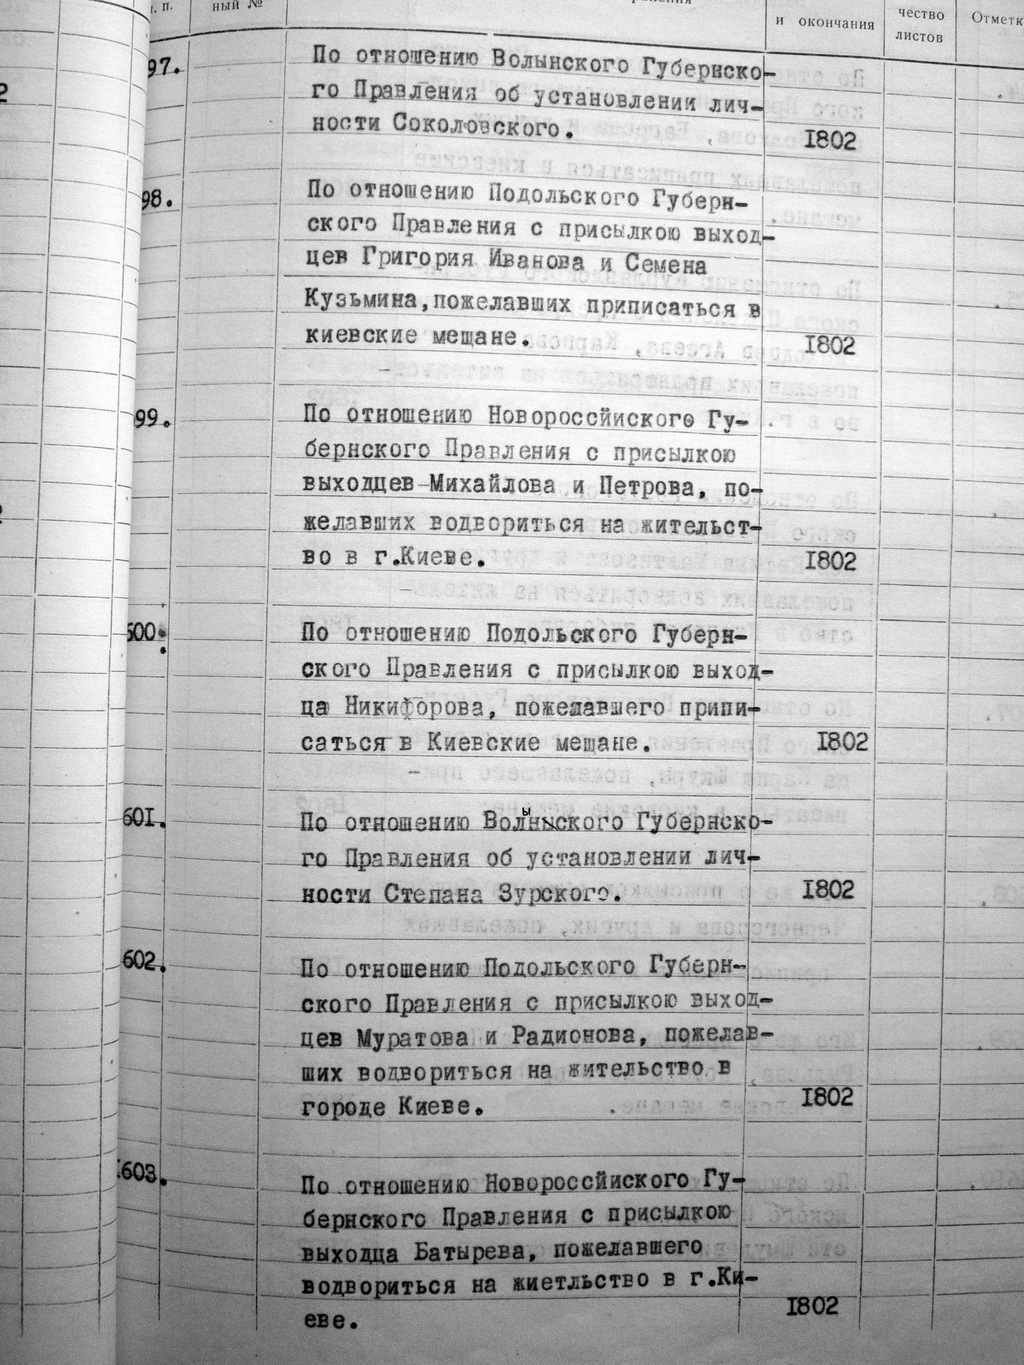 п. п.
ный №
и окончания
чество
листов
Отметк
97.
По отношению Волынского Губернско-
го Правления об установлении лич-
ности Соколовского.
1802
98.
По отношению Подольского Губерн-
ского Правления с присылкою выход-
цев Григория Иванова и Семена
Кузьмина,пожелавших приписаться в
киевские мещане.
1802
99.
По отношению Новороссйиского Гу-
бернского Правления с присылкою
выходцев Михайлова и Петрова, по-
желавших водвориться на жительст-
во в г.Киеве.
1802
600.
По отношению Подольского Губерн-
ского Правления с присылкою выход-
ца Никифорова, пожелавшего припи-
саться в Киевские мещане.
1802
601.
По отношению Волынского Губернско-
го Правления об установлении лич-
ности Степана Зурского.
1802
602.
По отношению Подольского Губерн-
ского Правления с присылкою выход-
цев Муратова и Радионова, пожелав-
ших водвориться на жительство в
городе Киеве.
1802
603.
По отношению Новороссйиского Гу-
бернского Правления с присылкою
выходца Батырева, пожелавшего
водвориться на жиетльство в г.Ки-
еве.
1802